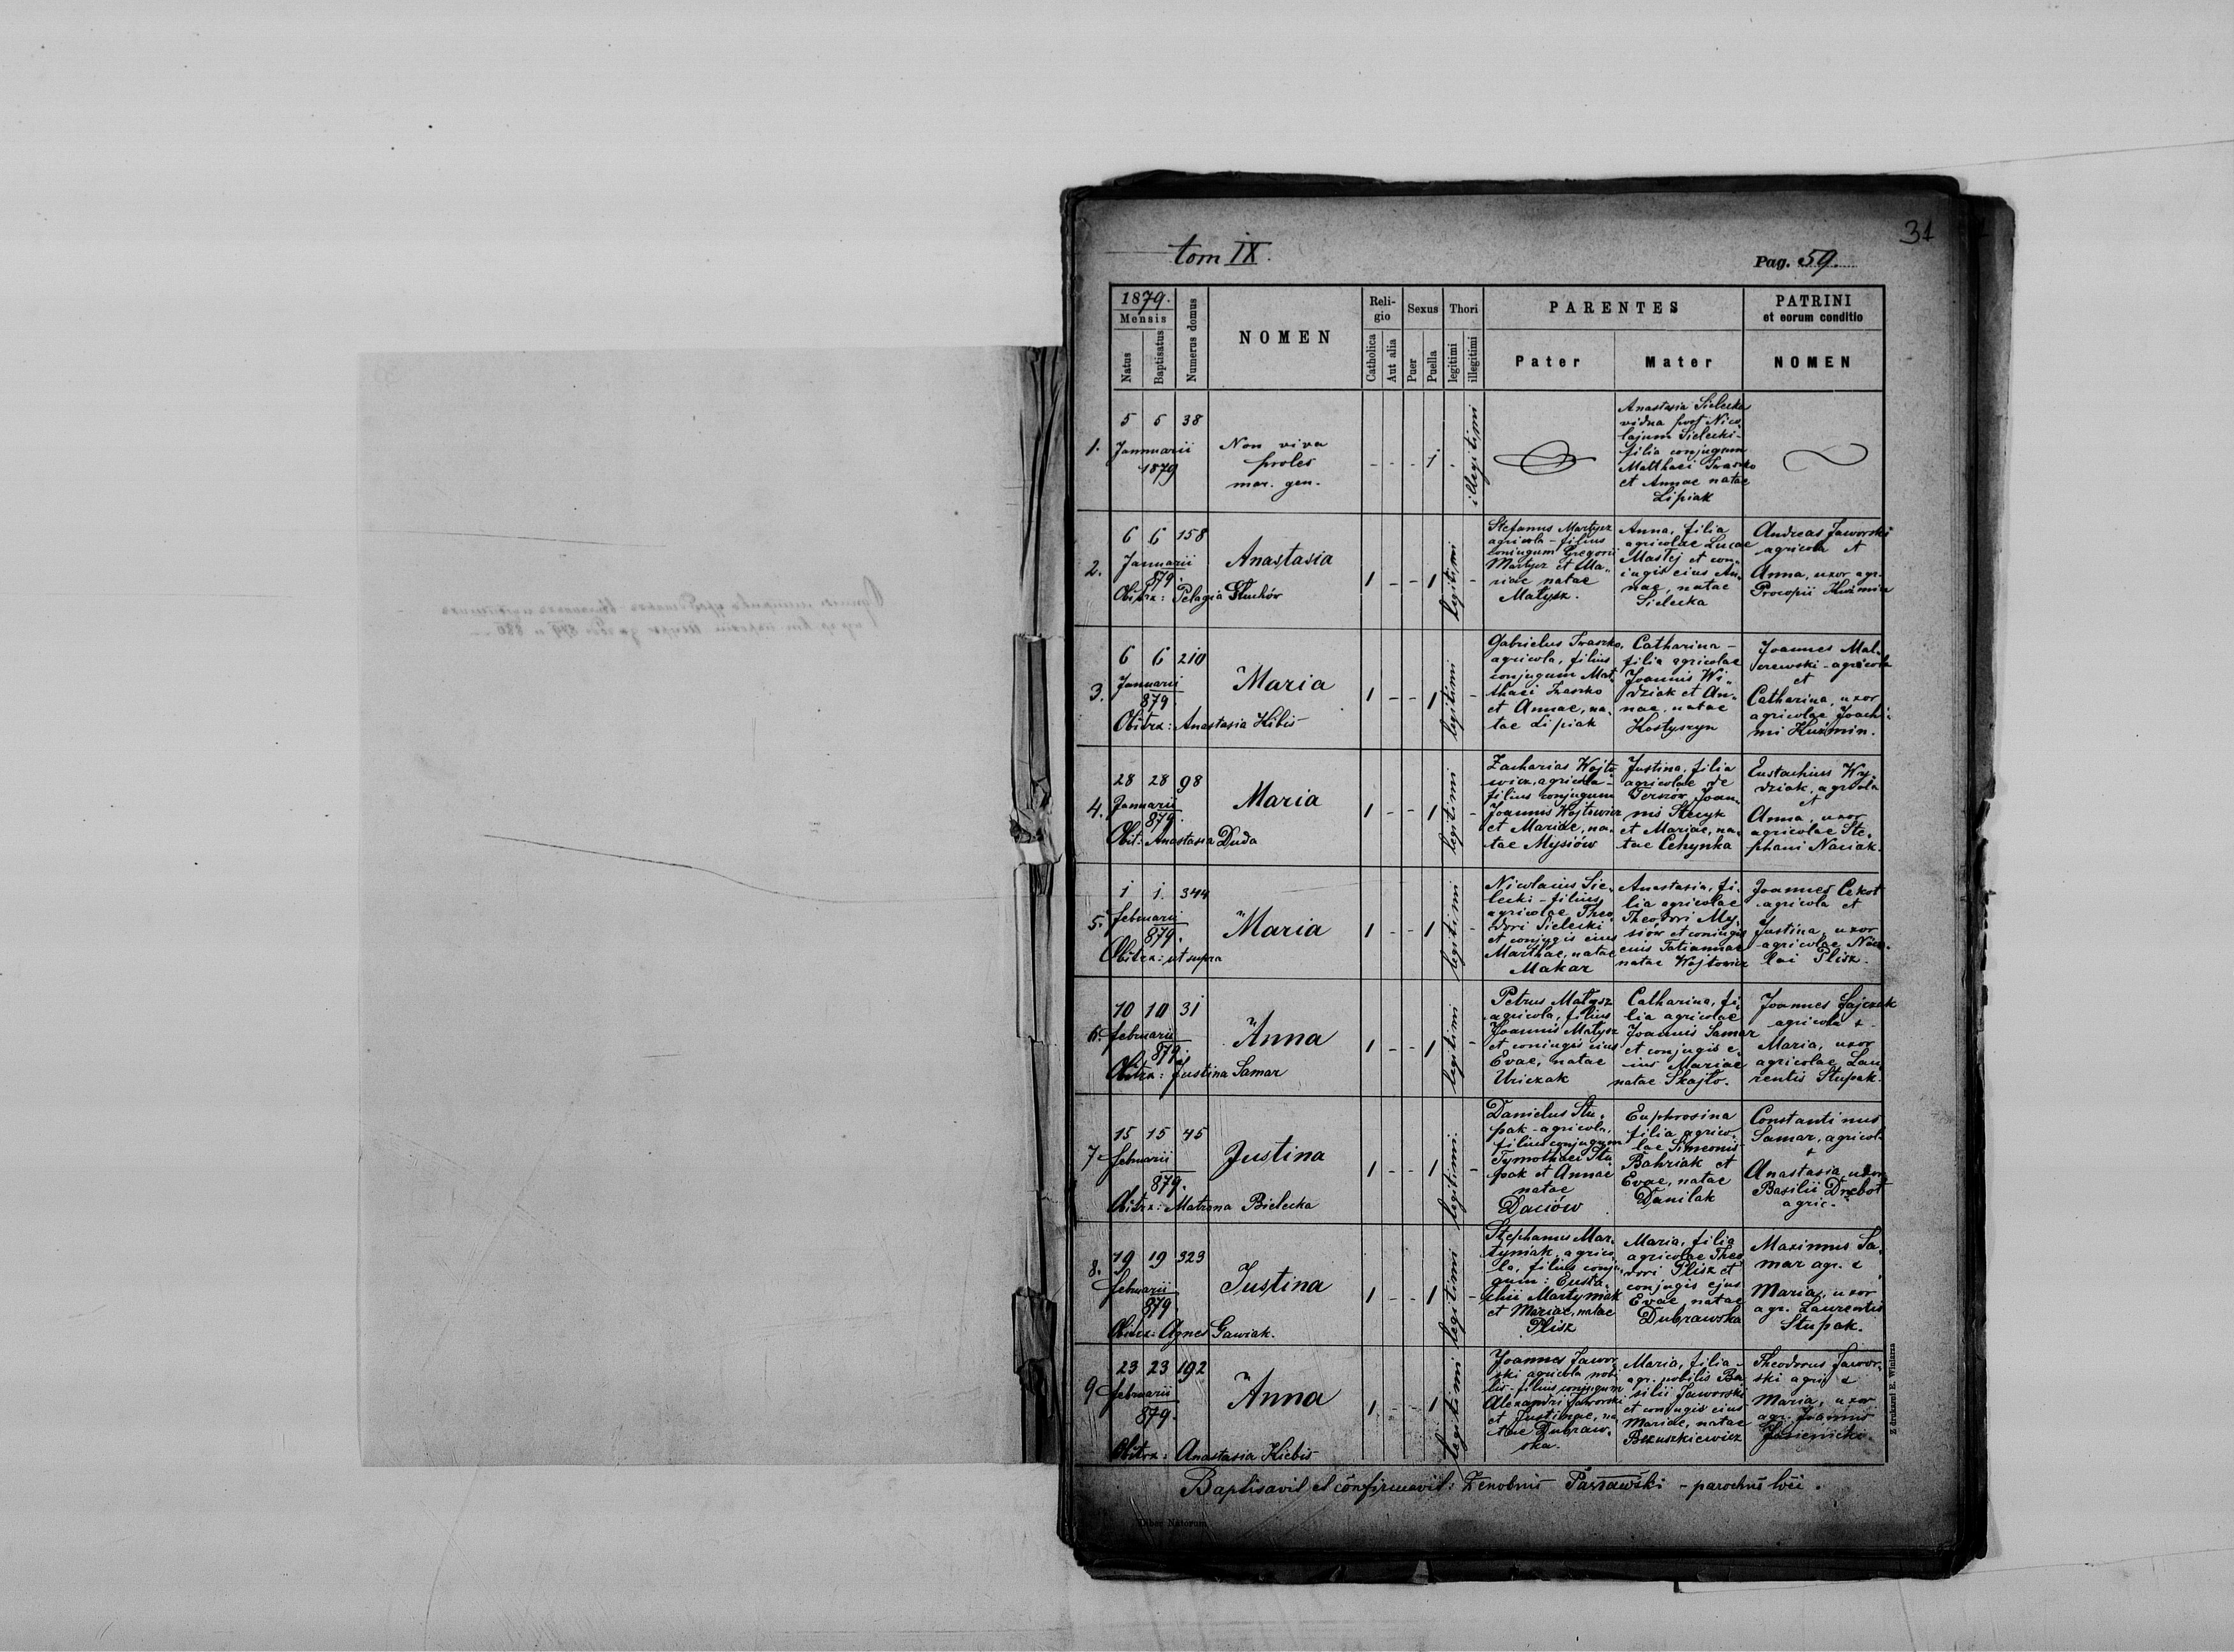 31
tom IX.
Pag. 59.
1879.
Mensis
Natus
Baptisatus
Numerus domus
NOMEN
Religio
Catholica
Aut alia
Sexus
Puer
Puella
Thori
legitimi
illegitimi
PARENTES
Pater
Mater
PATRINI
et eorum conditio
NOMEN
1.
5 5 38
Jannuarii
1879
Non viva
proles
mar. gen.
- - - 1 .
illegitimi
Anastasia Sielecka
vidua post Nico
lajum Sielecki -
filia conjugum
Matthaei Iwaszko
et Annae natae
Lipiak
2.
6 6 158
Januarii
879.
Anastasia
Obstrx: Pelagia Stuchór
1 - - 1
legitimi
-
Stefanus Martysz
agricola - filius
coniugum Gregorii
Martysz et Ma„
riae natae
Matysz.
Anna, filia
agricolae Lucae
Mastej et con„
iugis eius An„
nae, natae
Sielecka
Andreas Jaworski
agricola et
Anna, uxor agr.
Procopii Kuźmin
3.
6 6 210
Januarii
879
Maria
Obstrx: Anastasia Kibis
1 - - 1
legitimi
-
Gabrielus Iwaszko,
agricola, filius
conjugum Mat„
thaei Iwaszko
et Annae, na„
tae Lipiak
Catharina -
filia agricolae
Joannis Wi„
dziak et An„
nae, natae
Kostyszyn
Joannes Mal„
crewski - agricola
et
Catharina, uxor
agricolae Joachi„
mi Kuźmin.
4.
28 28 98
Januarii
879.
Maria
Obst: Anastasia Duda
1 - - 1
legitimi
-
Zacharias Wojto
wicz, agricola -
filius conjugum
Joannis Wojtowicz
et Mariae, na„
tae Mysiów
Justina, filia
agricolae de
Terszow Joan„
nis Stecyk
et Mariae, na„
tae Cehynka
Eustachius Wy„
dziak, agricola
et
Anna, uxor
agricolae Ste„
phani Naciak.
5.
1 1. 344
februarii
879.
Maria
Obstrx: ut supra
1 - - 1
legitimi
-
Nicolaius Sie„
lecki - filius
agricolae Theo„
dori Sielecki
et conjugis eius
Marthae, natae
Makar
Anastasia, fi„
lia agricolae
Theodori My„
siów et coniugis
eius Tatiannae
natae Wojtowicz
Joannes Cekot
agricola et
Justina, uxor
agricolae Nico„
lai Plisz.
6.
10 10 31
februarii
879.
Anna
Obstrx: Justina Samar
1 - - 1
legitimi
-
Petrus Matysz
agricola, filius
Joannis Matysz
et coniugis eius
Evae, natae
Uniczak
Catharina, fi„
lia agricolae
Joannis Samar
et conjugis e„
ius Mariae
natae Skajto.
Joannes Sajczuk
agricola &
Maria, uxor
agricolae Lau„
rentis Stupak.
7
15 15 45
februarii
879.
Justina
Obstrx: Matrona Bielecka
1 - - 1
legitimi
-
Danielus Stu„
pak - agricola,
filius conjugum
Tymothaei Stu
pak et Annae
natae
Daciów
Euphrosina
filia agrico„
lae Simeonis
Bahriak et
Evae, natae
Danilak
Constantinus
Samar, agricol.
&
Anastasia uxor
Basilii Drebot
agric.
8.
19 19 323
februarii
879.
Justina
Obstrx: Agnes Gawiak.
1 - - 1
legitimi
-
Stephanus Mar„
tyniak, agrico„
la, filius conju„
gum: Eusta„
chii Martyniak
et Mariae, natae
Plisz
Maria, filia
agricolae Theo
dori Plisz et
conjugis ejus
Evae natae
Dubrawska
Maximus Sa„
mar agr. &
Maria, uxor
agr. Laurentis
Stupak.
9
23 23 192
februarii
879.
Anna
Obstrx: Anastasia Kiebis
1 - - 1
legitimi
Joannes Jawor
ski agricola nobi
lis - filius conjugum
Alexandri Jaworski
et Justinae, na
tae Dubraw„
ska.
Maria, filia -
agr. nobilis Ba
silii Jaworski
et conjugis eius
Mariae, natae
Bruszkiewicz
Theodorus Jawor„
ski agric. &
Maria, uxor
agr. Joannis
Jasienicki.
Baptisavit et confirmavit: Zenobius Tarnawski - parochus loci.
Liber Natorum
Z drukarni E. Winiarza